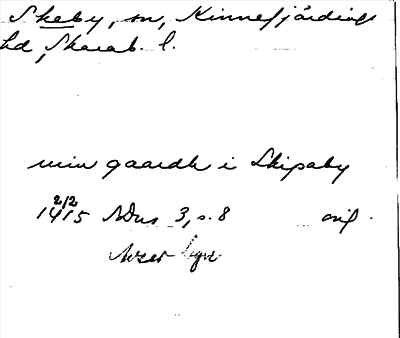 Skeby, sn, Kinnefjärdings
hd, Skarab. l.
min gaardh i Skipaby
2/2
1415 NDns 3, s. 8 orig.